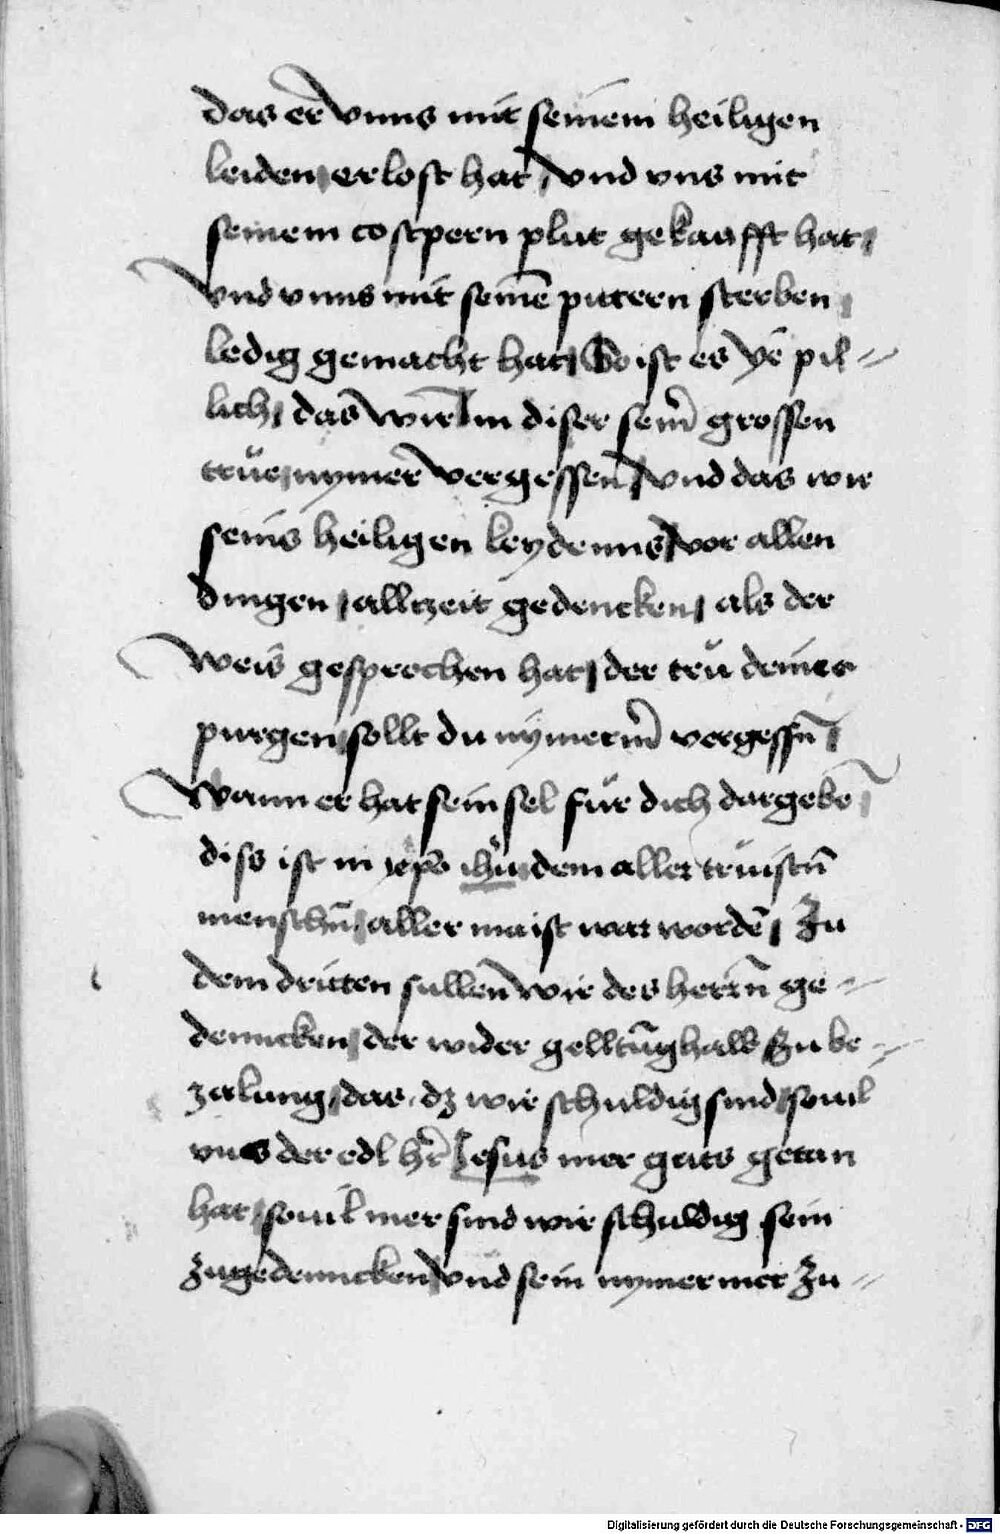 das er vnns mit seinem heiligen
leiden erlost hat / vnd vns mit
seinem costpern plut gekaufft hat /
vnd vnns mit seinē pittern sterben
ledig gemacht hat / So ist es ye pil=
lich / das wir in diser seiner grossen
trüe nymer vergessen / vnd das wir
seins heiligen leydenns vor allen
dingen / alltzeit gedencken / als der
weis gesprochen hat / der trü deines
purgen sollt du nymermer vergessñ /
Wann er hat sein sel für dich dargebē
diss ist in xpo ihū dem aller trüistñ
menschñ / aller maist war wordē / Zu
dem dritten sullen wir des herrñ ge=
denncken / der wider gelltūg halb Zu be=
zalung / das dz wir schuldig sind / souil
vns der edl hr̄ Jesus mer guts getan
hat / souil mer sind wir schuldig sein
zugedenncken / vnd sein nymer mer Zu=
Digitalisierung gefördert durch die Deutsche Forschungsgemeinschaft - DFG